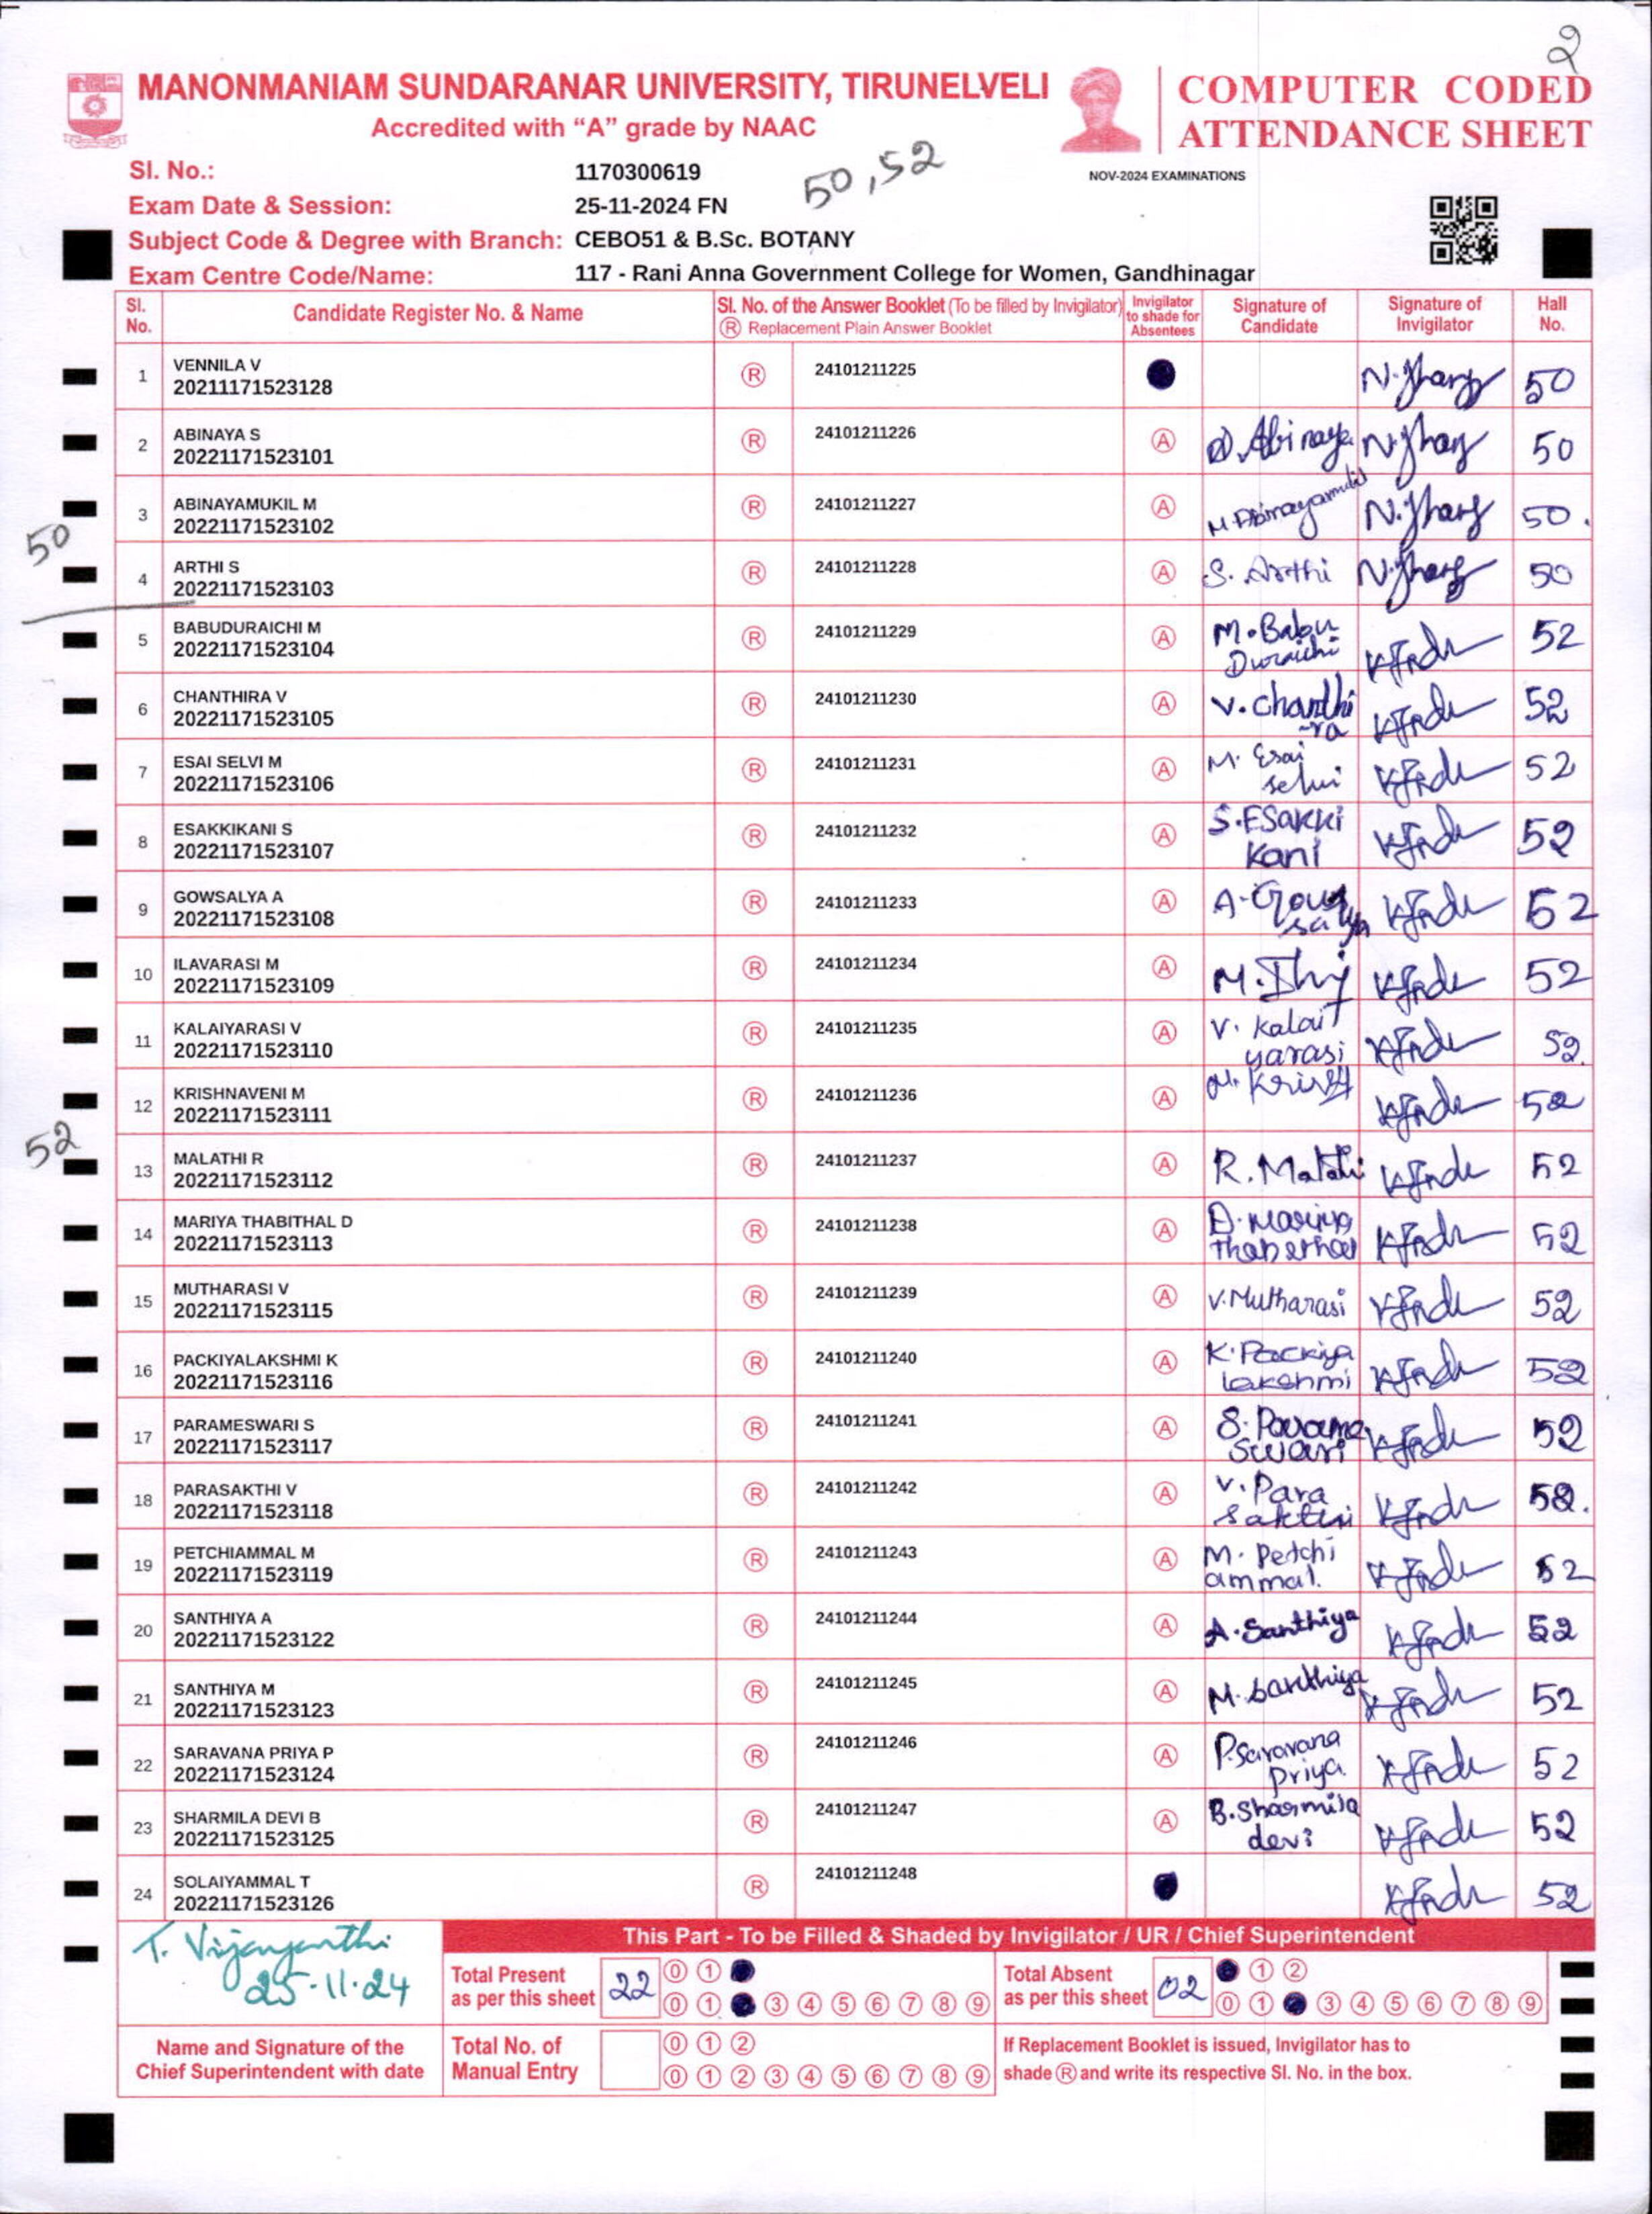 2
MANONMANIAM SUNDARANAR UNIVERSITY, TIRUNELVELI
Accredited with “A” grade by NAAC
COMPUTER CODED
ATTENDANCE SHEET
NOV-2024 EXAMINATIONS
50,52
Sl. No.: 1170300619
Exam Date & Session: 25-11-2024 FN
Subject Code & Degree with Branch: CEBO51 & B.Sc. BOTANY
Exam Centre Code/Name: 117 - Rani Anna Government College for Women, Gandhinagar
Sl. No. Candidate Register No. & Name Sl. No. of the Answer Booklet (To be filled by Invigilator) Ⓡ Replacement Plain Answer Booklet Invigilator to shade for Absentees Signature of Candidate Signature of Invigilator Hall No.
1 VENNILA V Ⓡ 24101211225 50
20211171523128
2 ABINAYA S Ⓡ 24101211226 Ⓐ Abinaya 50
20221171523101
3 ABINAYAMUKIL M Ⓡ 24101211227 Ⓐ M Abinayamukil 50.
20221171523102
50
4 ARTHI S Ⓡ 24101211228 Ⓐ S. Arthi 50
20221171523103
5 BABUDURAICHI M Ⓡ 24101211229 Ⓐ M. Babu Duraichi 52
20221171523104
6 CHANTHIRA V Ⓡ 24101211230 Ⓐ V. Chanthi -ra 52
20221171523105
7 ESAI SELVI M Ⓡ 24101211231 Ⓐ M. Esai selvi 52
20221171523106
8 ESAKKIKANI S Ⓡ 24101211232 Ⓐ S. ESakki Kani 52
20221171523107
9 GOWSALYA A Ⓡ 24101211233 Ⓐ A. Gow salya 52
20221171523108
10 ILAVARASI M Ⓡ 24101211234 Ⓐ 52
20221171523109
11 KALAIYARASI V Ⓡ 24101211235 Ⓐ V. Kalai yarasi 52.
20221171523110
12 KRISHNAVENI M Ⓡ 24101211236 Ⓐ 52
20221171523111
52
13 MALATHI R Ⓡ 24101211237 Ⓐ R. Malathi 52
20221171523112
14 MARIYA THABITHAL D Ⓡ 24101211238 Ⓐ D. Mariya 52
20221171523113
15 MUTHARASI V Ⓡ 24101211239 Ⓐ V. Mutharasi 52
20221171523115
16 PACKIYALAKSHMI K Ⓡ 24101211240 Ⓐ K. Packiya Lakshmi 52
20221171523116
17 PARAMESWARI S Ⓡ 24101211241 Ⓐ S. Parame swari 52
20221171523117
18 PARASAKTHI V Ⓡ 24101211242 Ⓐ V. Para Sakthi 52.
20221171523118
19 PETCHIAMMAL M Ⓡ 24101211243 Ⓐ M. Petchi ammal. 52
20221171523119
20 SANTHIYA A Ⓡ 24101211244 Ⓐ A. Santhiya 52
20221171523122
21 SANTHIYA M Ⓡ 24101211245 Ⓐ M. Santhiya 52
20221171523123
22 SARAVANA PRIYA P Ⓡ 24101211246 Ⓐ P. Saravana Priya. 52
20221171523124
23 SHARMILA DEVI B Ⓡ 24101211247 Ⓐ B. Sharmila devi 52
20221171523125
24 SOLAIYAMMAL T Ⓡ 24101211248 52
20221171523126
T. Vijayanthi
25-11-24
This Part - To be Filled & Shaded by Invigilator / UR / Chief Superintendent
Total Present as per this sheet 22 0 1
0 1 3 4 5 6 7 8 9
Total Absent as per this sheet 02 1 2
0 1 3 4 5 6 7 8 9
Name and Signature of the Chief Superintendent with date
Total No. of Manual Entry 0 1 2
0 1 2 3 4 5 6 7 8 9
If Replacement Booklet is issued, Invigilator has to
shade Ⓡ and write its respective Sl. No. in the box.